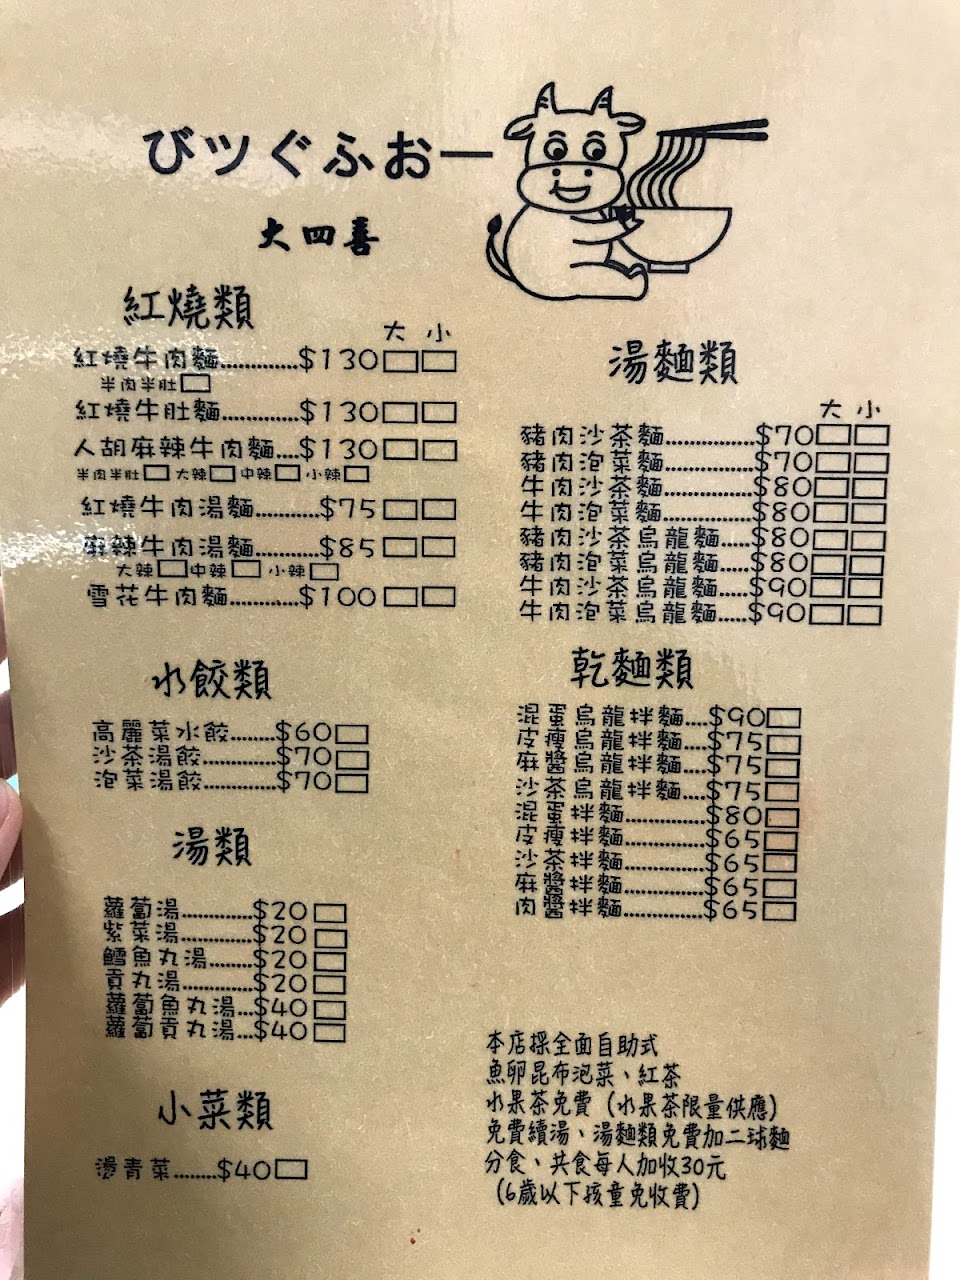 びツぐふおー
大四喜
紅燒類
大 小
紅燒牛肉麵.............$130
半肉半肚
紅燒牛肚麵.............$130
人胡麻辣牛肉麵....$130
半肉半肚 大辣 中辣 小辣
紅燒牛肉湯麵...........$75
麻辣牛肉湯麵...........$85
大辣 中辣 小辣
雪花牛肉麵............$100
水餃類
高麗菜水餃........$60
沙茶湯餃.............$70
泡菜湯餃.............$70
湯類
蘿蔔湯.............$20
紫菜湯.............$20
鱈魚丸湯.........$20
貢丸湯.............$20
蘿蔔魚丸湯...$40
蘿蔔貢丸湯...$40
小菜類
燙青菜........$40
湯麵類
大 小
豬肉沙茶麵................$70
豬肉泡菜麵................$70
牛肉沙茶麵................$80
牛肉泡菜麵................$80
豬肉沙茶烏龍麵.....$80
豬肉泡菜烏龍麵.....$80
牛肉沙茶烏龍麵.....$90
牛肉泡菜烏龍麵.....$90
乾麵類
混蛋烏龍拌麵....$90
皮瘦烏龍拌麵....$75
麻醬烏龍拌麵....$75
沙茶烏龍拌麵....$75
混蛋拌麵..............$80
皮瘦拌麵..............$65
沙茶拌麵..............$65
麻醬拌麵..............$65
肉醬拌麵..............$65
本店採全面自助式
魚卵昆布泡菜、紅茶
水果茶免費（水果茶限量供應）
免費續湯、湯麵類免費加二球麵
分食、共食每人加收30元
（6歲以下孩童免收費）